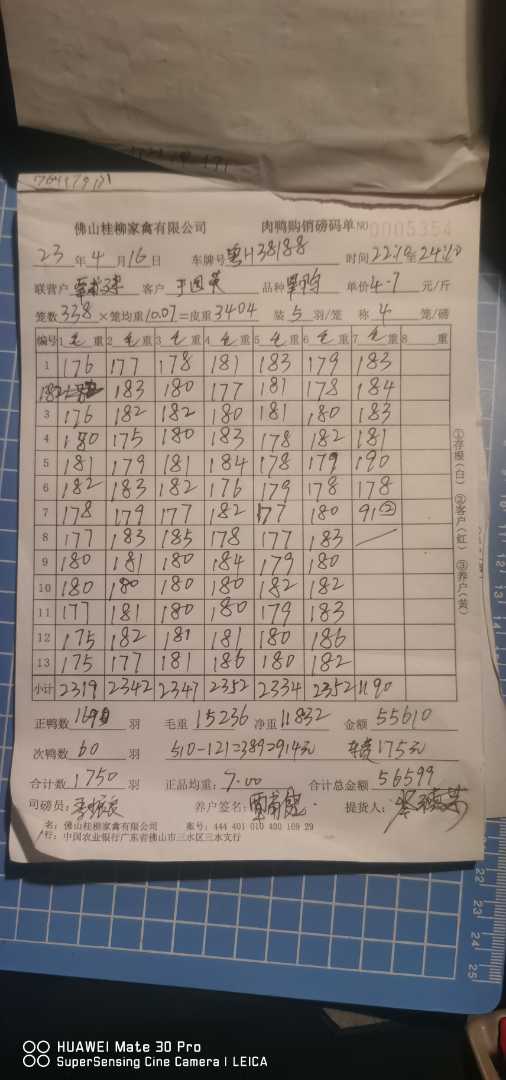 佛山桂柳家禽有限公司 肉鸭购销磅码单 NO 0005354
23 年 4 月 16 日 车牌号 粤H38188 时间
联营户 客户 品种 单价 4-7 元/斤
笼数 338 × 笼均重 10.07 = 皮重 3404 装 5 羽/笼 称 4 笼/磅
编号 1 毛 重 2 毛 重 3 毛 重 4 毛 重 5 毛 重 6 毛 重 7 毛 重 8 重
1 176 177 178 181 183 179 183
182 183 180 177 181 178 184
3 176 182 182 180 181 180 183
4 180 175 180 183 178 182 181
5 181 179 181 184 178 179 190
6 182 183 182 176 179 178 178
7 178 179 177 182 177 180 91②
8 177 183 185 178 177 183
9 180 181 180 184 179 180
10 180 180 180 180 182 182
11 177 181 180 180 179 183
12 175 182 181 181 180 186
13 175 177 181 186 180 182
小计 2319 2342 2347 2352 2334 2352 1190
正鸭数 羽 毛重 15236 净重 11832 金额 55610
次鸭数 60 羽 510-121=389=914元 175元
合计数 1750 羽 正品均重: 7.00 合计总金额 56599
司磅员: 养户签名: 提货人:
名: 佛山桂柳家禽有限公司 账号: 444 401 010 400 109 29
行: 中国农业银行广东省佛山市三水区三水支行
①存根(白) ②客户(红) ③养户(黄)
22
23
24
25
HUAWEI Mate 30 Pro
SuperSensing Cine Camera | LEICA